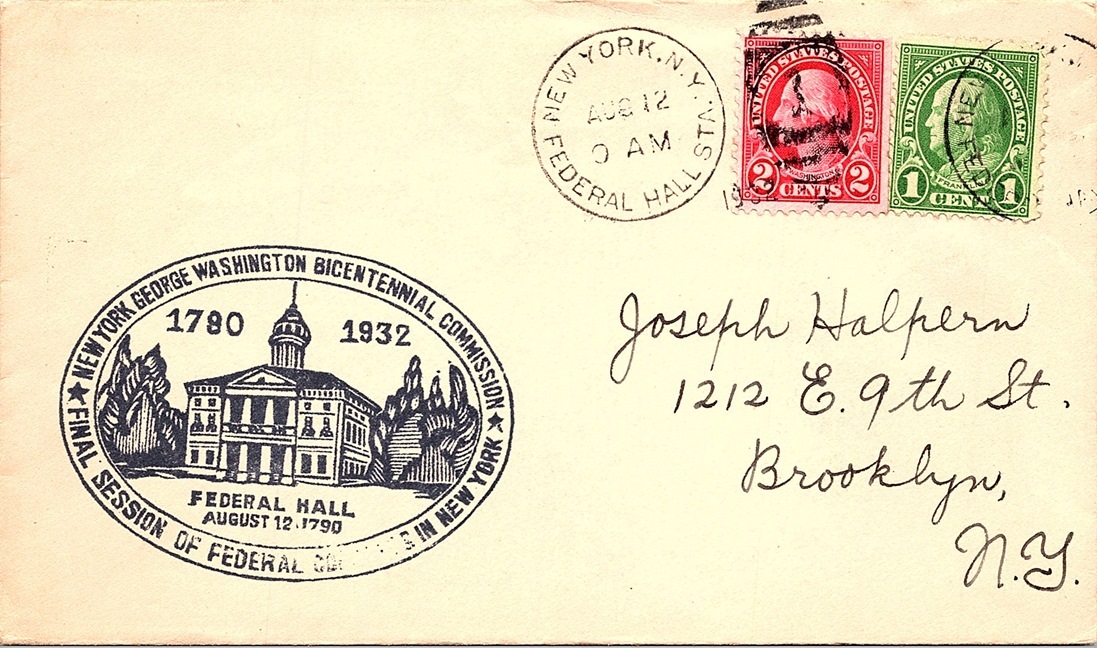 NEW YORK, N.Y.
AUG 12
0 AM
1932
FEDERAL HALL STA.
UNITED STATES POSTAGE
WASHINGTON
2 CENTS 2
UNITED STATES POSTAGE
FRANKLIN
1 CENT 1
NEW YORK GEORGE WASHINGTON BICENTENNIAL COMMISSION
1790 1932
FEDERAL HALL
AUGUST 12, 1790
FINAL SESSION OF FEDERAL IN NEW YORK
Joseph Halpern
1212 E. 9th St.
Brooklyn,
N.Y.